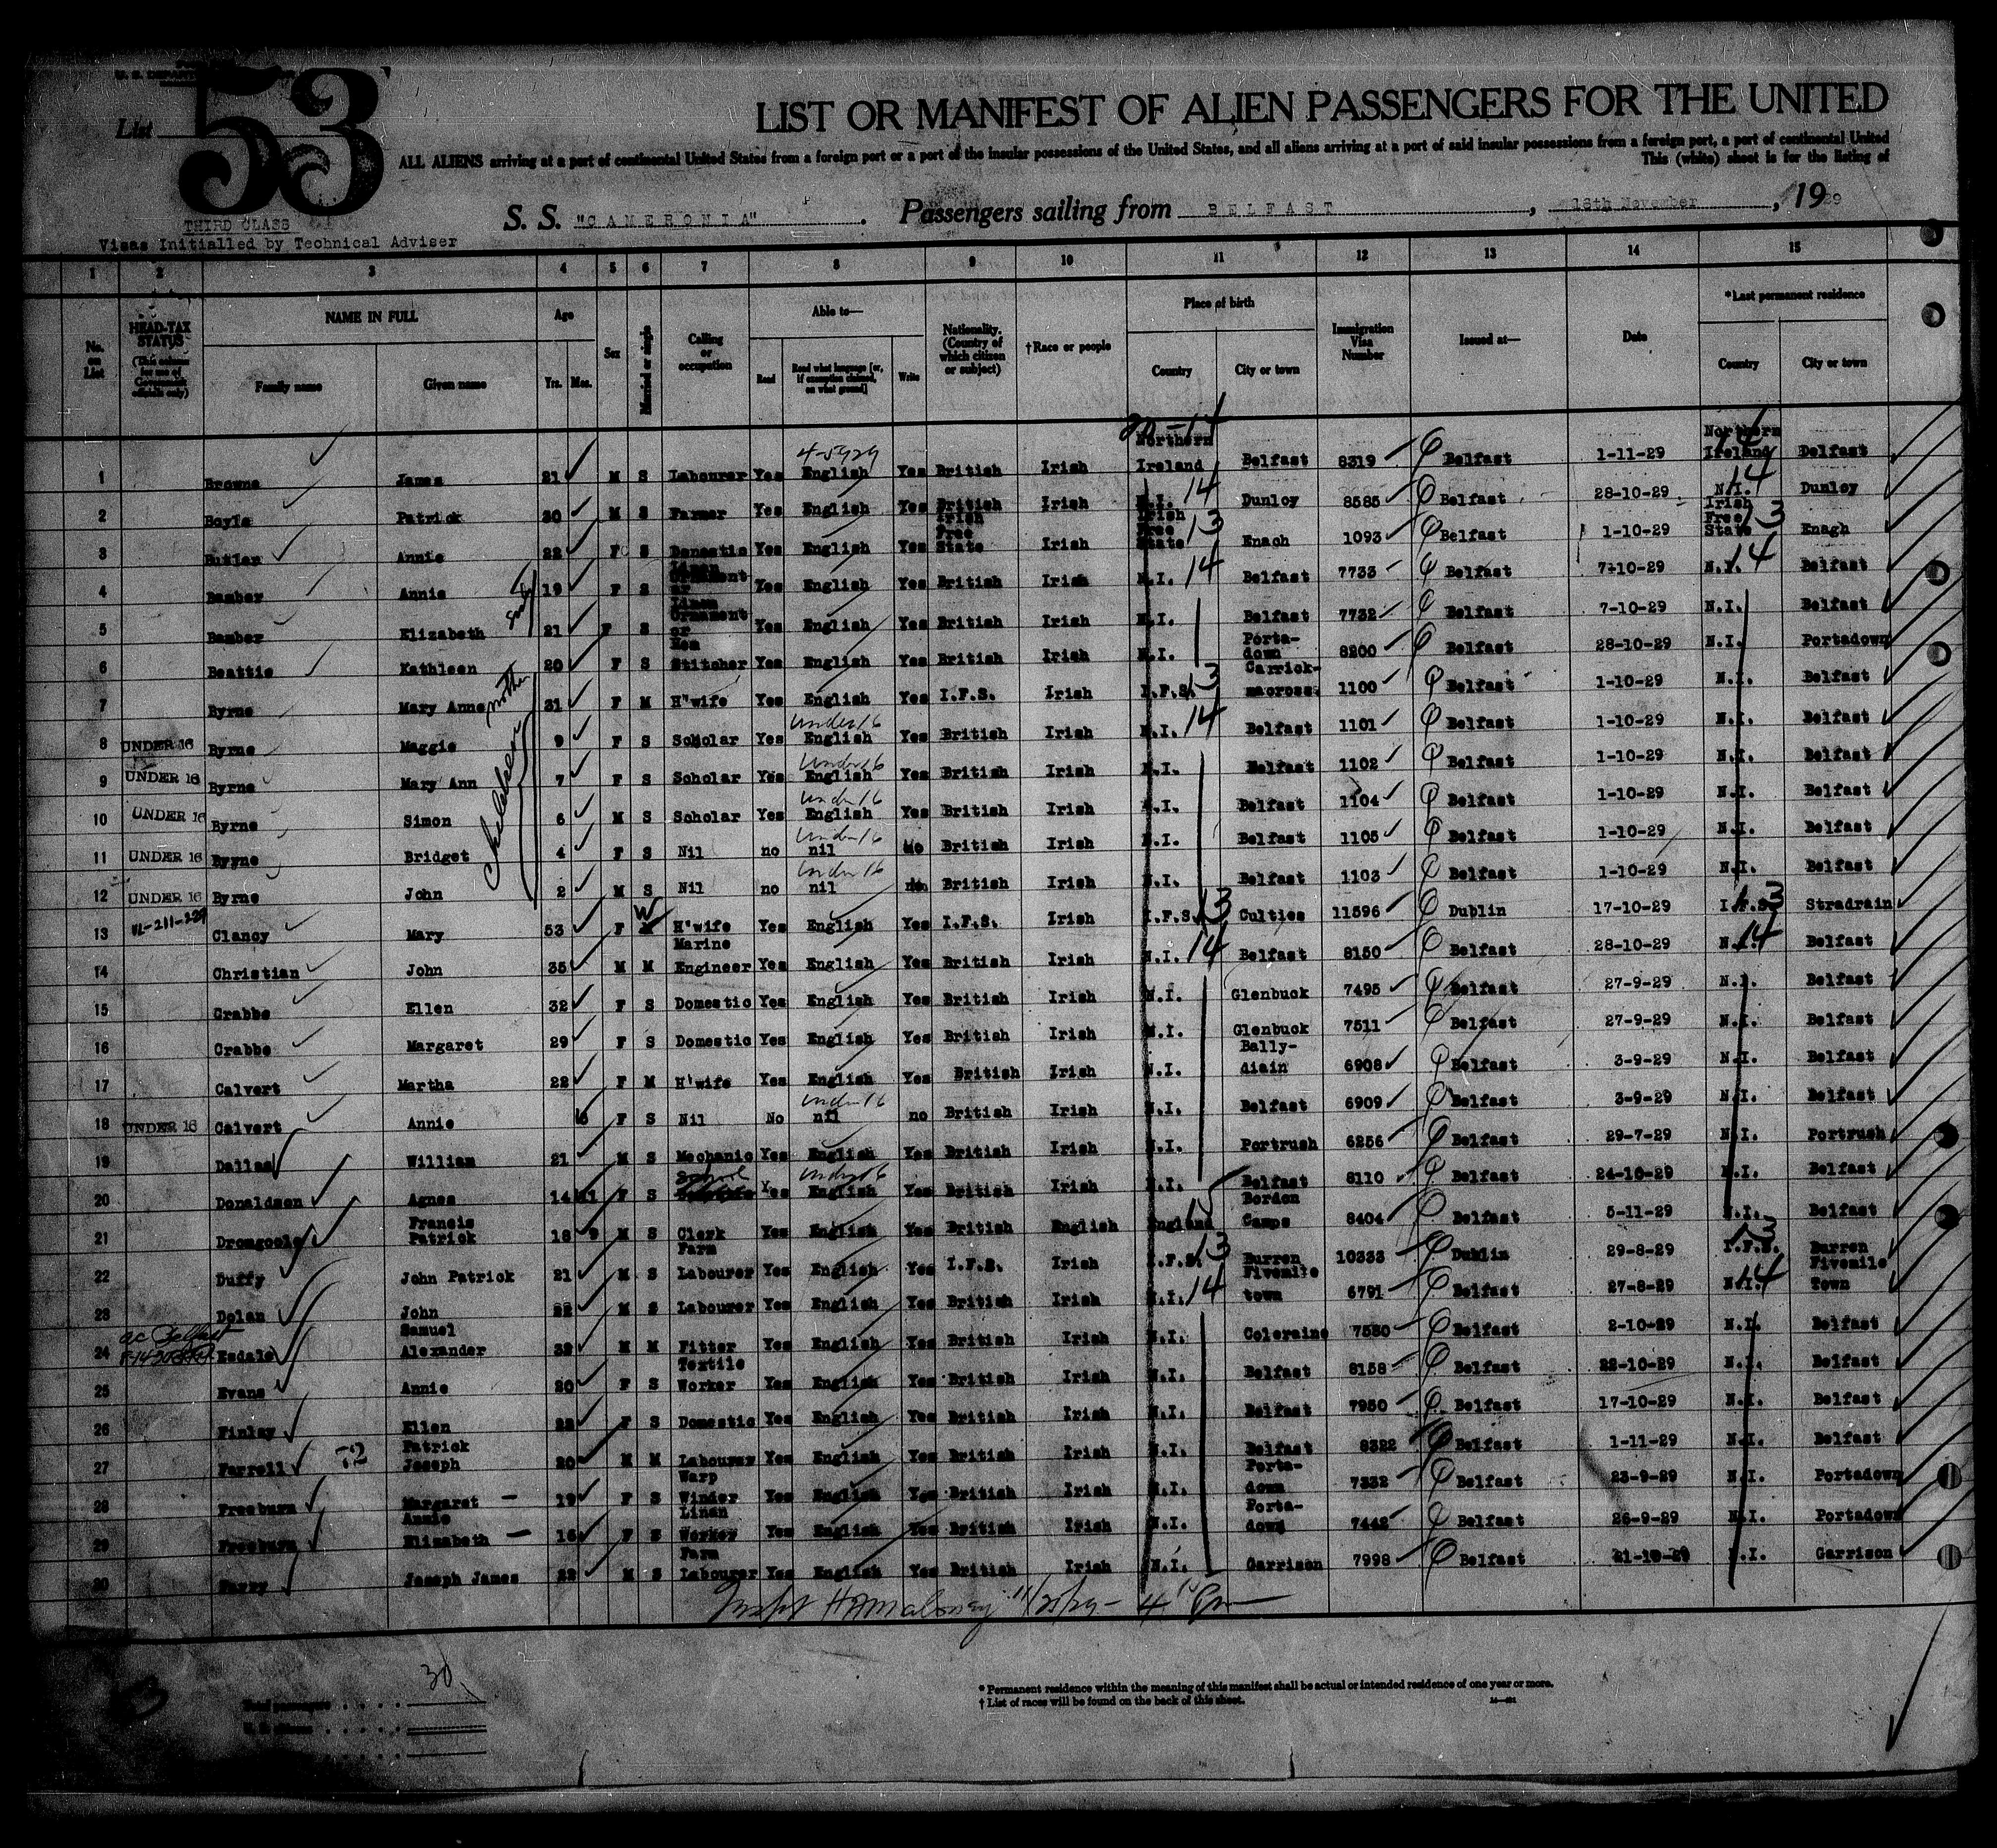 53
List
LIST OR MANIFEST OF ALIEN PASSENGERS FOR THE UNITED
ALL ALIENS arriving at a port of continental United States from a foreign port or a port of the insular possessions of the United States, and all aliens arriving at a port of said insular possessions from a foreign port, a port of continental United
This (white) sheet is for the listing of
THIRD CLASS
Visas Initialled by Technical Adviser
S. S. "CAMERONIA" . Passengers sailing from BELFAST , 16th November , 1929
1 2 3 4 5 6 7 8 9 10 11 12 13 14 15
No. on List
HEAD-TAX STATUS (This column for use of Government officials only)
NAME IN FULL
Family name Given name
Age
Yrs. Mos.
Sex
Married or single
Calling or occupation
Able to—
Read Read what language [or, if exemption claimed, on what ground] Write
Nationality. (Country of which citizen or subject)
†Race or people
Place of birth
Country City or town
Immigration Visa Number
Issued at—
Date
*Last permanent residence
Country City or town
1 Browne James 21 M S Labourer Yes English Yes British Irish Northern Ireland Belfast 8319 Belfast 1-11-29 Northern Ireland Belfast
2 Boyle Patrick 30 M S Farmer Yes English Yes British Irish N.I. 14 Dunloy 8585 Belfast 28-10-29 N.I. 14 Dunloy
3 Butler Annie 22 F S Domestic Yes English Yes Irish Free State Irish Irish Free State 13 Enagh 1093 Belfast 1-10-29 Irish Free State 13 Enagh
4 Bamber Annie 19 F S Yes English Yes British Irish N.I. 14 Belfast 7733 Belfast 7-10-29 N.I. 14 Belfast
5 Bamber Elizabeth 21 F S Yes English Yes British Irish N.I. Belfast 7732 Belfast 7-10-29 N.I. Belfast
6 Beattie Kathleen 20 F S Hem Stitcher Yes English Yes British Irish N.I. Portadown 8200 Belfast 28-10-29 N.I. Portadown
7 Byrne Mary Anne mother 31 F M H'wife Yes English Yes I.F.S. Irish I.F.S. 13 Carrickmacross 1100 Belfast 1-10-29 N.I. Belfast
8 UNDER 16 Byrne Maggie children 9 F S Scholar Yes under 16 English Yes British Irish N.I. 14 Belfast 1101 Belfast 1-10-29 N.I. Belfast
9 UNDER 16 Byrne Mary Ann 7 F S Scholar Yes under 16 English Yes British Irish N.I. Belfast 1102 Belfast 1-10-29 N.I. Belfast
10 UNDER 16 Byrne Simon 6 M S Scholar Yes under 16 English Yes British Irish N.I. Belfast 1104 Belfast 1-10-29 N.I. Belfast
11 UNDER 16 Byrne Bridget 4 F S Nil no under 16 nil No British Irish N.I. Belfast 1105 Belfast 1-10-29 N.I. Belfast
12 UNDER 16 Byrne John 2 M S Nil no under 16 nil no British Irish N.I. Belfast 1103 Belfast 1-10-29 N.I. Belfast
13 Clancy Mary 53 F W H'wife Yes English Yes I.F.S. Irish I.F.S. 13 Culties 11596 Dublin 17-10-29 I.F.S. 13 Stradrain
14 Christian John 35 M M Marine Engineer Yes English Yes British Irish N.I. 14 Belfast 8150 Belfast 28-10-29 N.I. 14 Belfast
15 Crabbe Ellen 32 F S Domestic Yes English Yes British Irish N.I. Glenbuck 7495 Belfast 27-9-29 N.I. Belfast
16 Crabbe Margaret 29 F S Domestic Yes English Yes British Irish N.I. Glenbuck 7511 Belfast 27-9-29 N.I. Belfast
17 Calvert Martha 22 F M H'wife Yes English Yes British Irish N.I. Ballydiain 6908 Belfast 3-9-29 N.I. Belfast
18 UNDER 16 Calvert Annie 6 F S Nil No under 16 nil no British Irish N.I. Belfast 6909 Belfast 3-9-29 N.I. Belfast
19 Dallas William 21 M S Mechanic Yes English Yes British Irish N.I. Portrush 6256 Belfast 29-7-29 N.I. Portrush
20 Donaldson Agnes 14 11 F S School Yes under 16 English Yes British Irish N.I. Belfast 8110 Belfast 24-10-29 N.I. Belfast
21 Dromgoole Francis Patrick 18 9 M S Clerk Yes English Yes British English England Bordon Camps 8404 Belfast 5-11-29 N.I. Belfast
22 Duffy John Patrick 21 M S Farm Labourer Yes English Yes I.F.S. Irish I.F.S. 13 Burren 10333 Dublin 29-8-29 I.F.S. 13 Burren
23 Dolan John 22 M S Labourer Yes English Yes British Irish N.I. 14 Fivemile town 6791 Belfast 27-8-29 N.I. 14 Fivemile Town
24 Esdale Samuel Alexander 32 M M Fitter Yes English Yes British Irish N.I. Coleraine 7550 Belfast 2-10-29 N.I. Belfast
25 Evans Annie 20 F S Textile Worker Yes English Yes British Irish N.I. Belfast 8158 Belfast 22-10-29 N.I. Belfast
26 Finlay Ellen 22 F S Domestic Yes English Yes British Irish N.I. Belfast 7950 Belfast 17-10-29 N.I. Belfast
27 Farrell 72 Patrick Joseph 20 M M Labourer Yes English Yes British Irish N.I. Belfast 8322 Belfast 1-11-29 N.I. Belfast
28 Freeburn Margaret 19 F S Warp Winder Yes English Yes British Irish N.I. Portadown 7332 Belfast 23-9-29 N.I. Portadown
29 Freeburn Annie Elizabeth 16 F S Linen Worker Yes English Yes British Irish N.I. Portadown 7442 Belfast 26-9-29 N.I. Portadown
30 Joseph James 22 M S Farm Labourer Yes English Yes British Irish N.I. Garrison 7998 Belfast 21-10-29 N.I. Garrison
30
Total passengers
* Permanent residence within the meaning of this manifest shall be actual or intended residence of one year or more.
† List of races will be found on the back of this sheet.